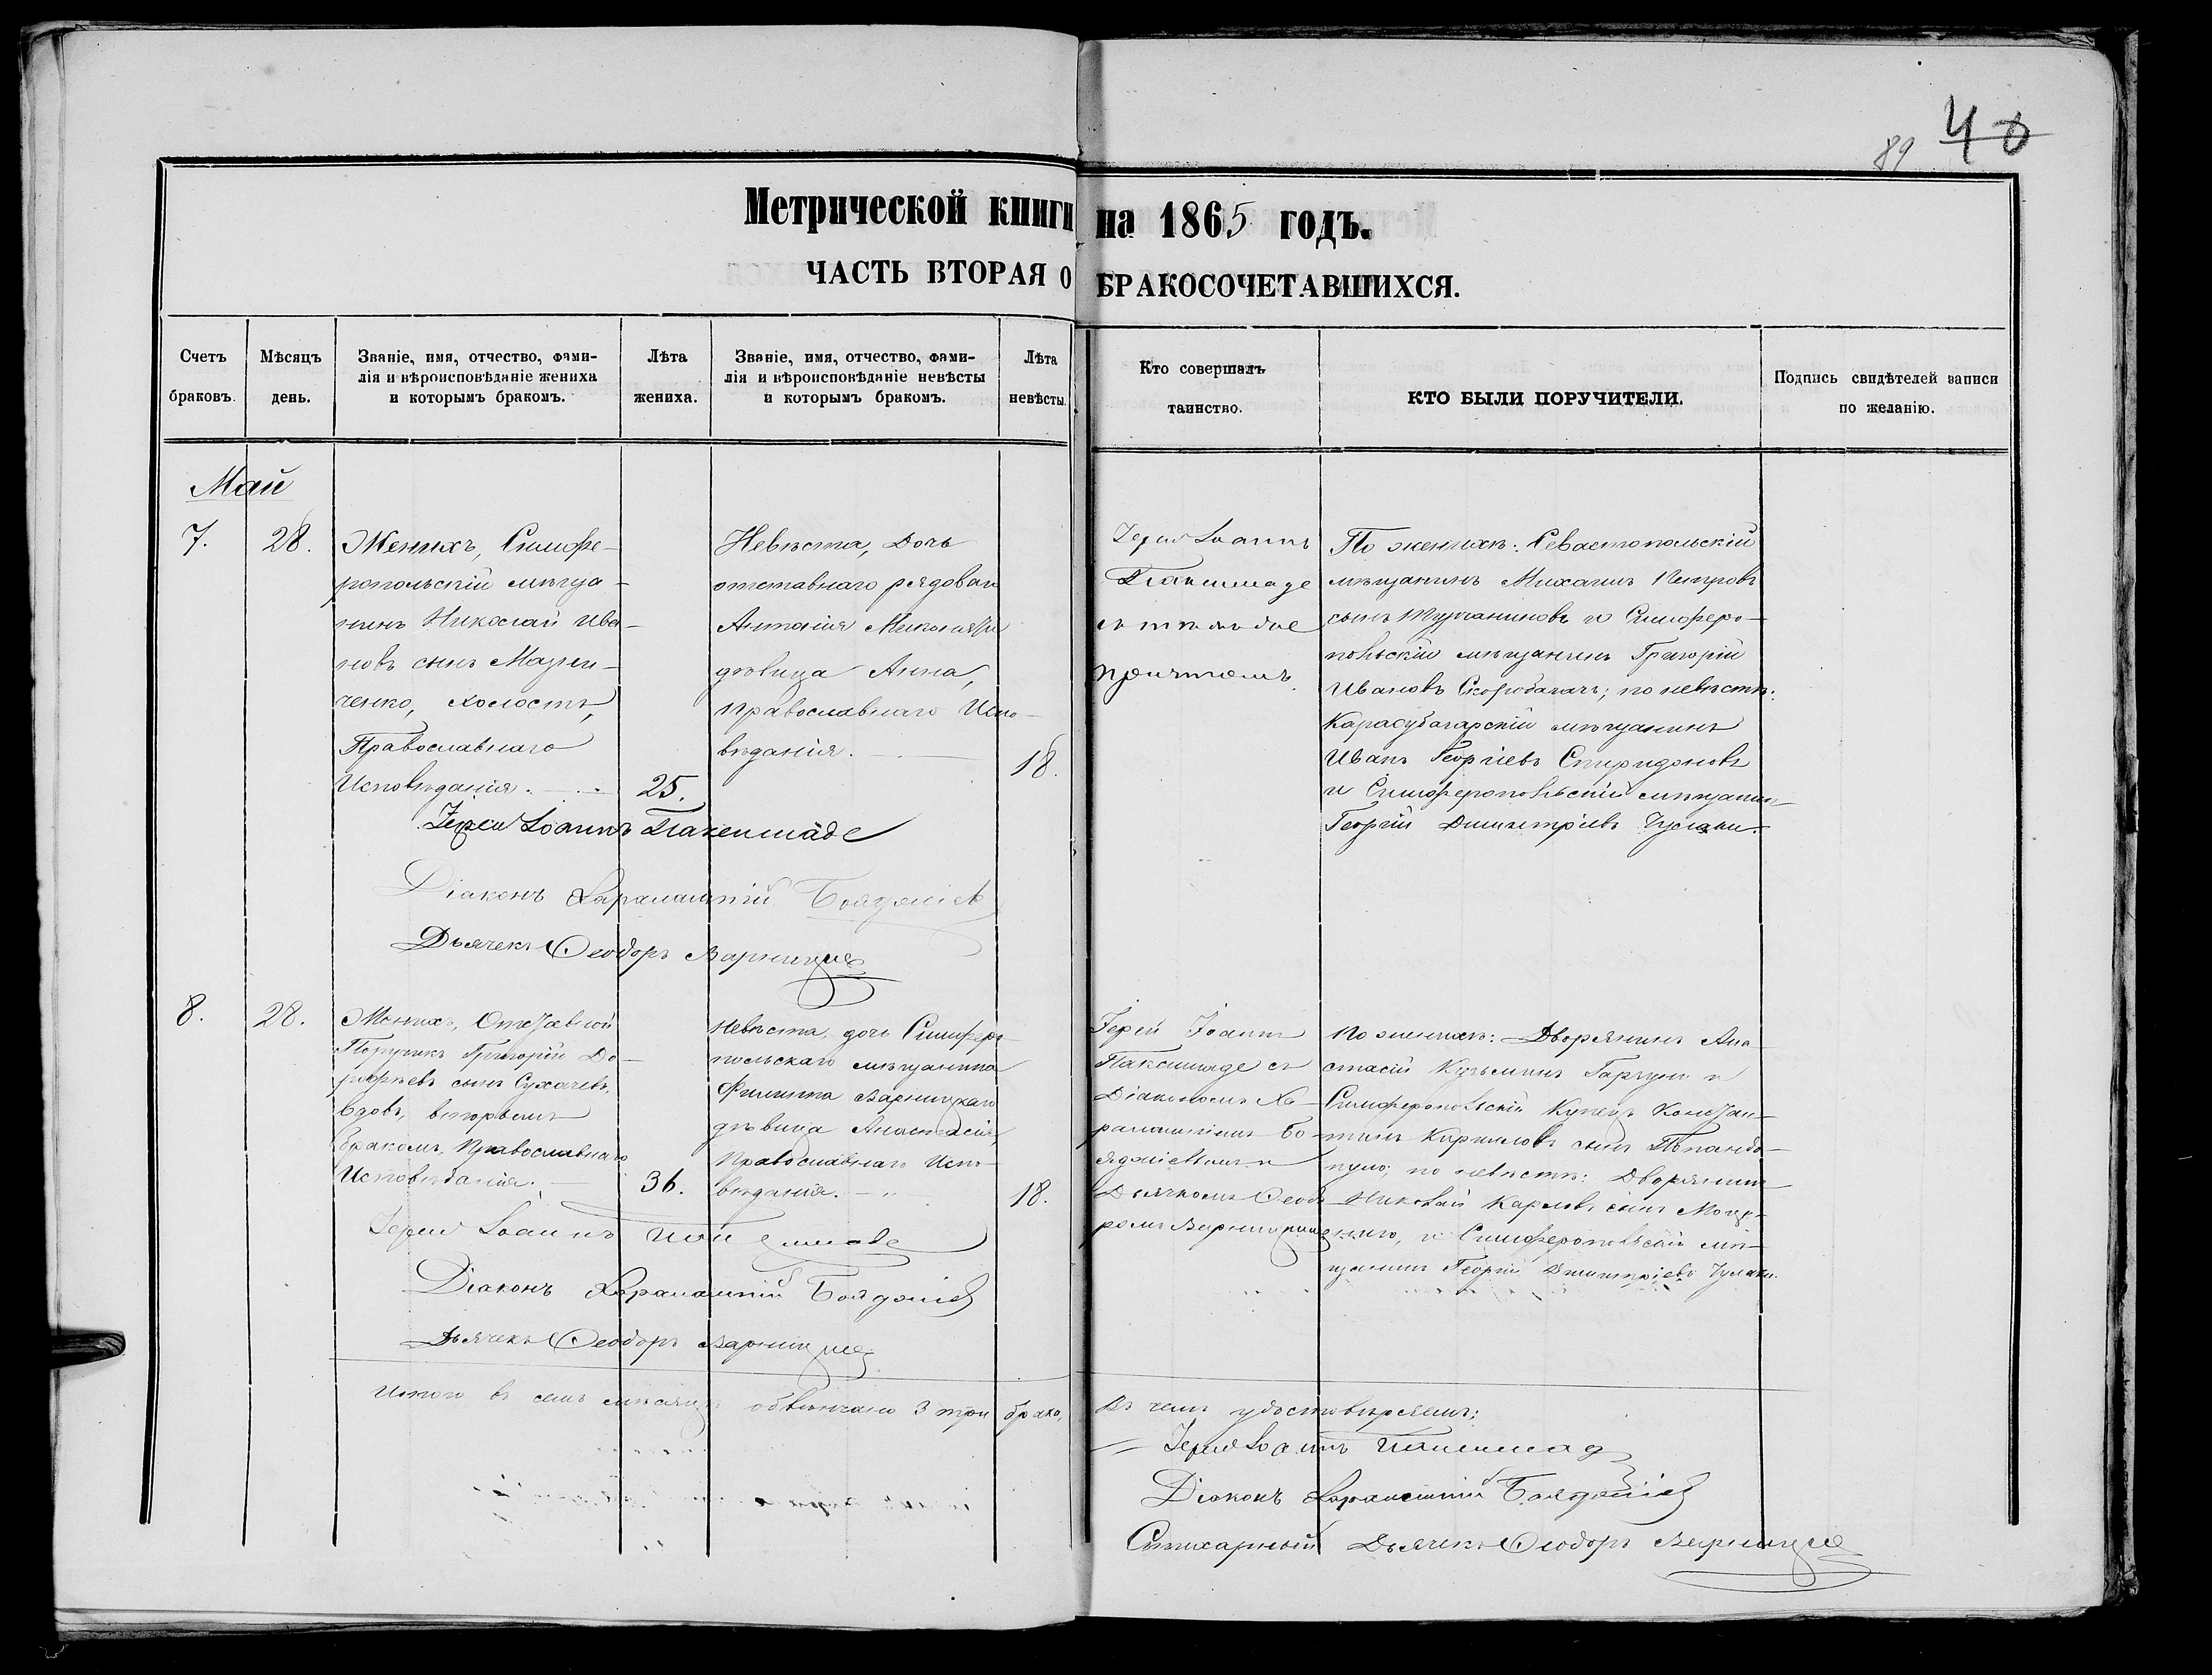 89 40
Метрической книги на 1865 годъ.
ЧАСТЬ ВТОРАЯ О БРАКОСОЧЕТАВШИХСЯ.
Счетъ
браковъ.
Мѣсяцъ
день.
Званіе, имя, отчество, фами-
лія и вѣроисповѣданіе жениха
и которымъ бракомъ.
Лѣта
жениха.
Званіе, имя, отчество, фами-
лія и вѣроисповѣданіе невѣсты
и которымъ бракомъ.
Лѣта
невѣсты.
Кто совершалъ
таинство.
КТО БЫЛИ ПОРУЧИТЕЛИ.
Подпись свидѣтелей записи
по желанію.
Май
7.
28.
Женихъ, Симфе-
ропольскій мѣща-
нинъ Николай Ива-
новъ сынъ
ченко, холостъ,
Православнаго
Исповѣданія.
25.
Невѣста, Дочь
отставнаго рядоваго
Антонія
дѣвица Анна,
Православнаго Испо-
вѣданія.
18.
Іерей Іоаннъ
Паксимаде
съ тѣмъ же
причтомъ.
По женихѣ: Севастопольскій
мѣщанинъ Михаилъ Петровъ
сынъ и Симферо-
польскій мѣщанинъ Григорій
Ивановъ; по невѣстѣ:
Карасубазарскій мѣщанинъ
Иванъ Георгіевъ Спиридоновъ
и Симферопольскій мѣщанинъ
Георгій Димитріевъ
Іерей Іоаннъ Паксимаде
Діаконъ Харалампій Бояджіевъ
Дьячекъ Ѳеодоръ
8.
28.
Женихъ, Отставной
Поручикъ Григорій До-
рофѣевъ сынъ Сухачевъ,
вдовъ, вторымъ
бракомъ, Православнаго
Исповѣданія.
36.
Невѣста, дочь Симферо-
польскаго мѣщанина
Филиппа Варницкаго
дѣвица Анастасія,
Православнаго Испо-
вѣданія.
18.
Іерей Іоаннъ
Паксимаде съ
Діакономъ Ха-
рлампіемъ Бо-
яджіевымъ и
Дьячкомъ Ѳеодо-
ромъ
По женихѣ: Дворянинъ Ана-
стасій Кузьминъ и
Симферопольскій Купецъ Констан-
тинъ Кириловъ сынъ
пуло; по невѣстѣ: Дворянинъ
Николай Карловъ сынъ
и Симферопольскій мѣ-
щанинъ Георгій Димитріевъ
Іерей Іоаннъ Паксимаде
Діаконъ Харалампій Бояджіевъ
Дьячекъ Ѳеодоръ
Итого въ семъ мѣсяцѣ обвѣнчано 3 три брака,
Въ чемъ удостовѣряемъ:
Іерей Іоаннъ Паксимаде
Діаконъ Харалампій Бояджіевъ
Стихарный Дьячекъ Ѳеодоръ